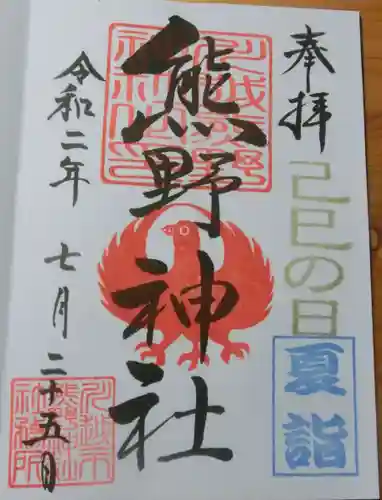 奉拝
己巳の日
夏詣
熊野神社
令和二年 七月 二十五日